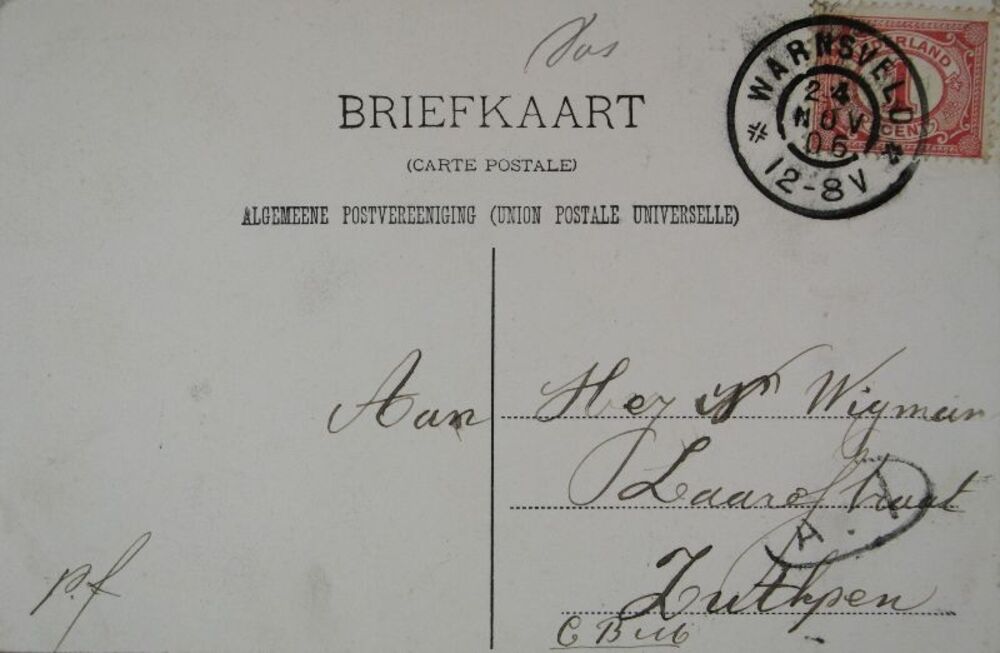 BRIEFKAART
(CARTE POSTALE)
ALGEMEENE POSTVEREENIGING (UNION POSTALE UNIVERSELLE)
NEDERLAND
1
CENT
WARNSVELD
24
NOV
06
12-8V
Aan
Wigman
Laarstraat
A.
Zutphen
p.f